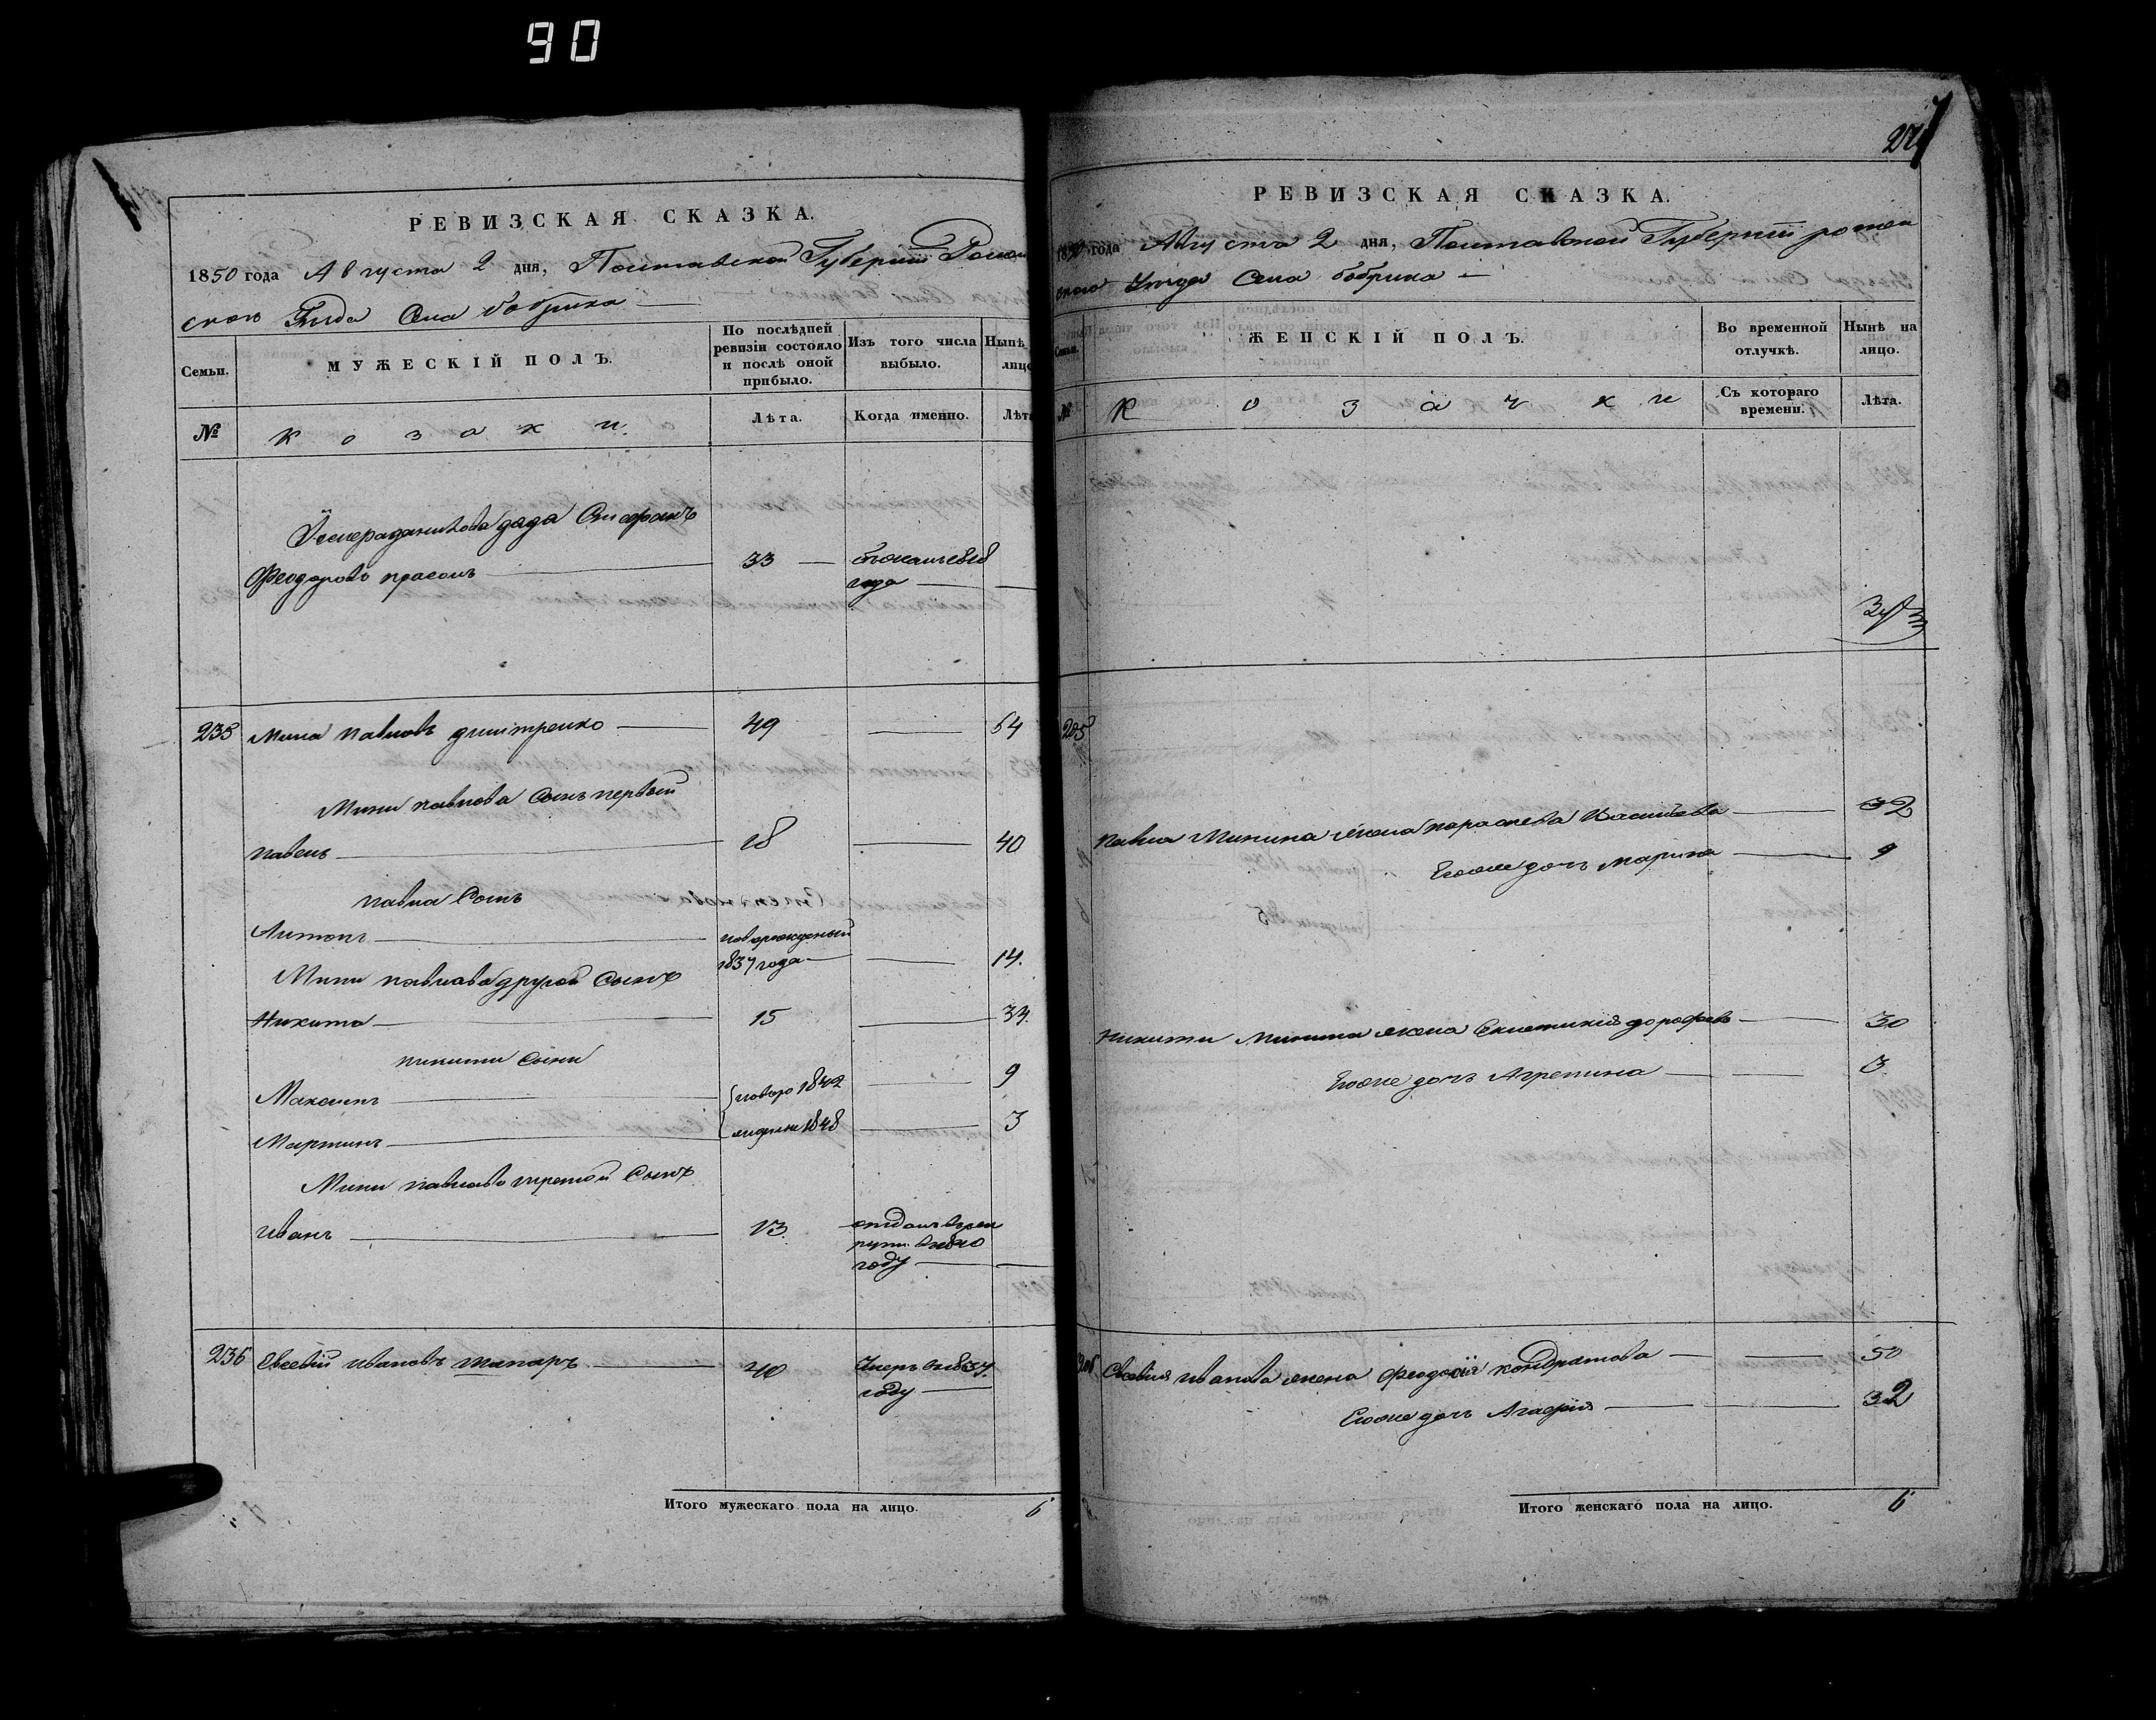 90
РЕВИЗСКАЯ СКАЗКА.
1850 года Августа 2 дня, Полтавской Губернии Ромен
ского Уезда Села бобрика
Семьи.
МУЖЕСКІЙ ПОЛЪ.
По послѣдней ревизіи состояло и послѣ оной прибыло.
Изъ того числа выбыло.
Нынѣ
лицо
№
козаки
Лѣта.
Когда именно.
Лѣта
дядя
Феодоровъ
33
года
235 Мина павловъ дмитренко 49 64
Мини павлова Сынъ первый
павелъ 18 40
павла Сынъ
Антонъ новорожденый
1837 года 14.
Мини павлова другой Сынъ
Никита 15 34.
никити Сыни
Максимъ новоро 1842 9
Мартинъ 1848 3
Мини павлова третой Сынъ
иванъ 13. отданъ врек
рути в 1840
году
236 Евсевій ивановъ шапаръ 40 Умеръ в 1837.
году
Итого мужескаго пола на лицо. 6
РЕВИЗСКАЯ СКАЗКА.
1850 года Августа 2 дня, Полтавской Губерніи ромен
ского Уезда Села бобрика
Семьи.
ЖЕНСКІЙ ПОЛЪ.
Во временной отлучкѣ.
Нынѣ на лицо.
№
козачки
Съ котораго времени.
Лѣта.
235
павла Минина жена параскева Василева 32
Егоже дочъ марина 9
никити Минина жена дорофеева 30
Егоже дочъ Агрепина 3
236 Евсевия иванова жена феодосія кондратова 50
Егоже дочъ Агафія 32
Итого женскаго пола на лицо. 6